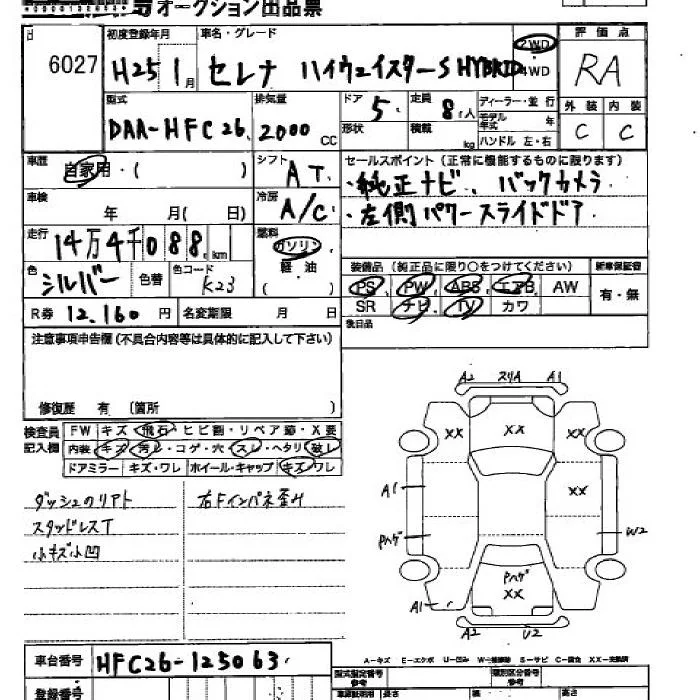 オークション出品票
6027
初度登録年月
H25 1月
車名・グレード
セレナ ハイウェイスターS HYBRID
2WD
4WD
評価点
RA
型式
DAA-HFC26
排気量
2000 CC
ドア
5
形状
定員
8人
積載
kg
ディーラー・並行
モデル年式
年
ハンドル 左・右
外装
C
内装
C
車歴
自家用・( )
シフト
AT
セールスポイント(正常に機能するものに限ります)
・純正ナビ、バックカメラ
・左側パワースライドドア
車検
年 月( 日)
冷房
A/C
走行
14万4千088km
燃料
ガソリン
軽油
( )
色
シルバー
色替
色コード
K23
装備品(純正品に限り○をつけてください)
新車保証書
PS PW ABS エアB AW
有・無
SR ナビ TV カワ
R券 12,160円
名変期限 月 日
後日品
注意事項申告欄(不具合内容等は具体的に記入して下さい)
修復歴 有 (箇所 )
検査員記入欄
FW キズ・飛石・ヒビ割・リペア跡・X要
内装 キズ・汚レ・コゲ・穴・スレ・ヘタリ・破レ
ドアミラー キズ・ワレ ホイール・キャップ キズ・ワレ
ダッシュのリアト
右Fインパネ歪み
スタッドレスT
小キズ小凹
A2 スリA A1
XX XX
XX
A1
Pハゲ
W2
Pハゲ
XX
A1
A2 U2
車台番号
HFC26-125063
A-キズ E-エクボ U-凹み W-補修跡 S-サビ C-腐食 XX-交換済
型式指定番号
参考
類別区分番号
参考
登録番号
車輌説明用
長さ
幅
高さ